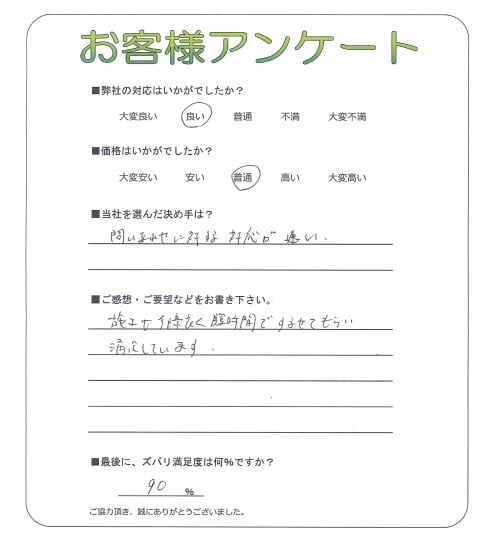 お客様アンケート
■弊社の対応はいかがでしたか?
大変良い 良い 普通 不満 大変不満
■価格はいかがでしたか?
大変安い 安い 普通 高い 大変高い
■当社を選んだ決め手は?
問い合わせに対する対応が速い.
■ご感想・ご要望などをお書き下さい。
施工も手際良く短時間ですませてもらい
満足しています.
■最後に、ズバリ満足度は何%ですか?
90 %
ご協力頂き、誠にありがとうございました。